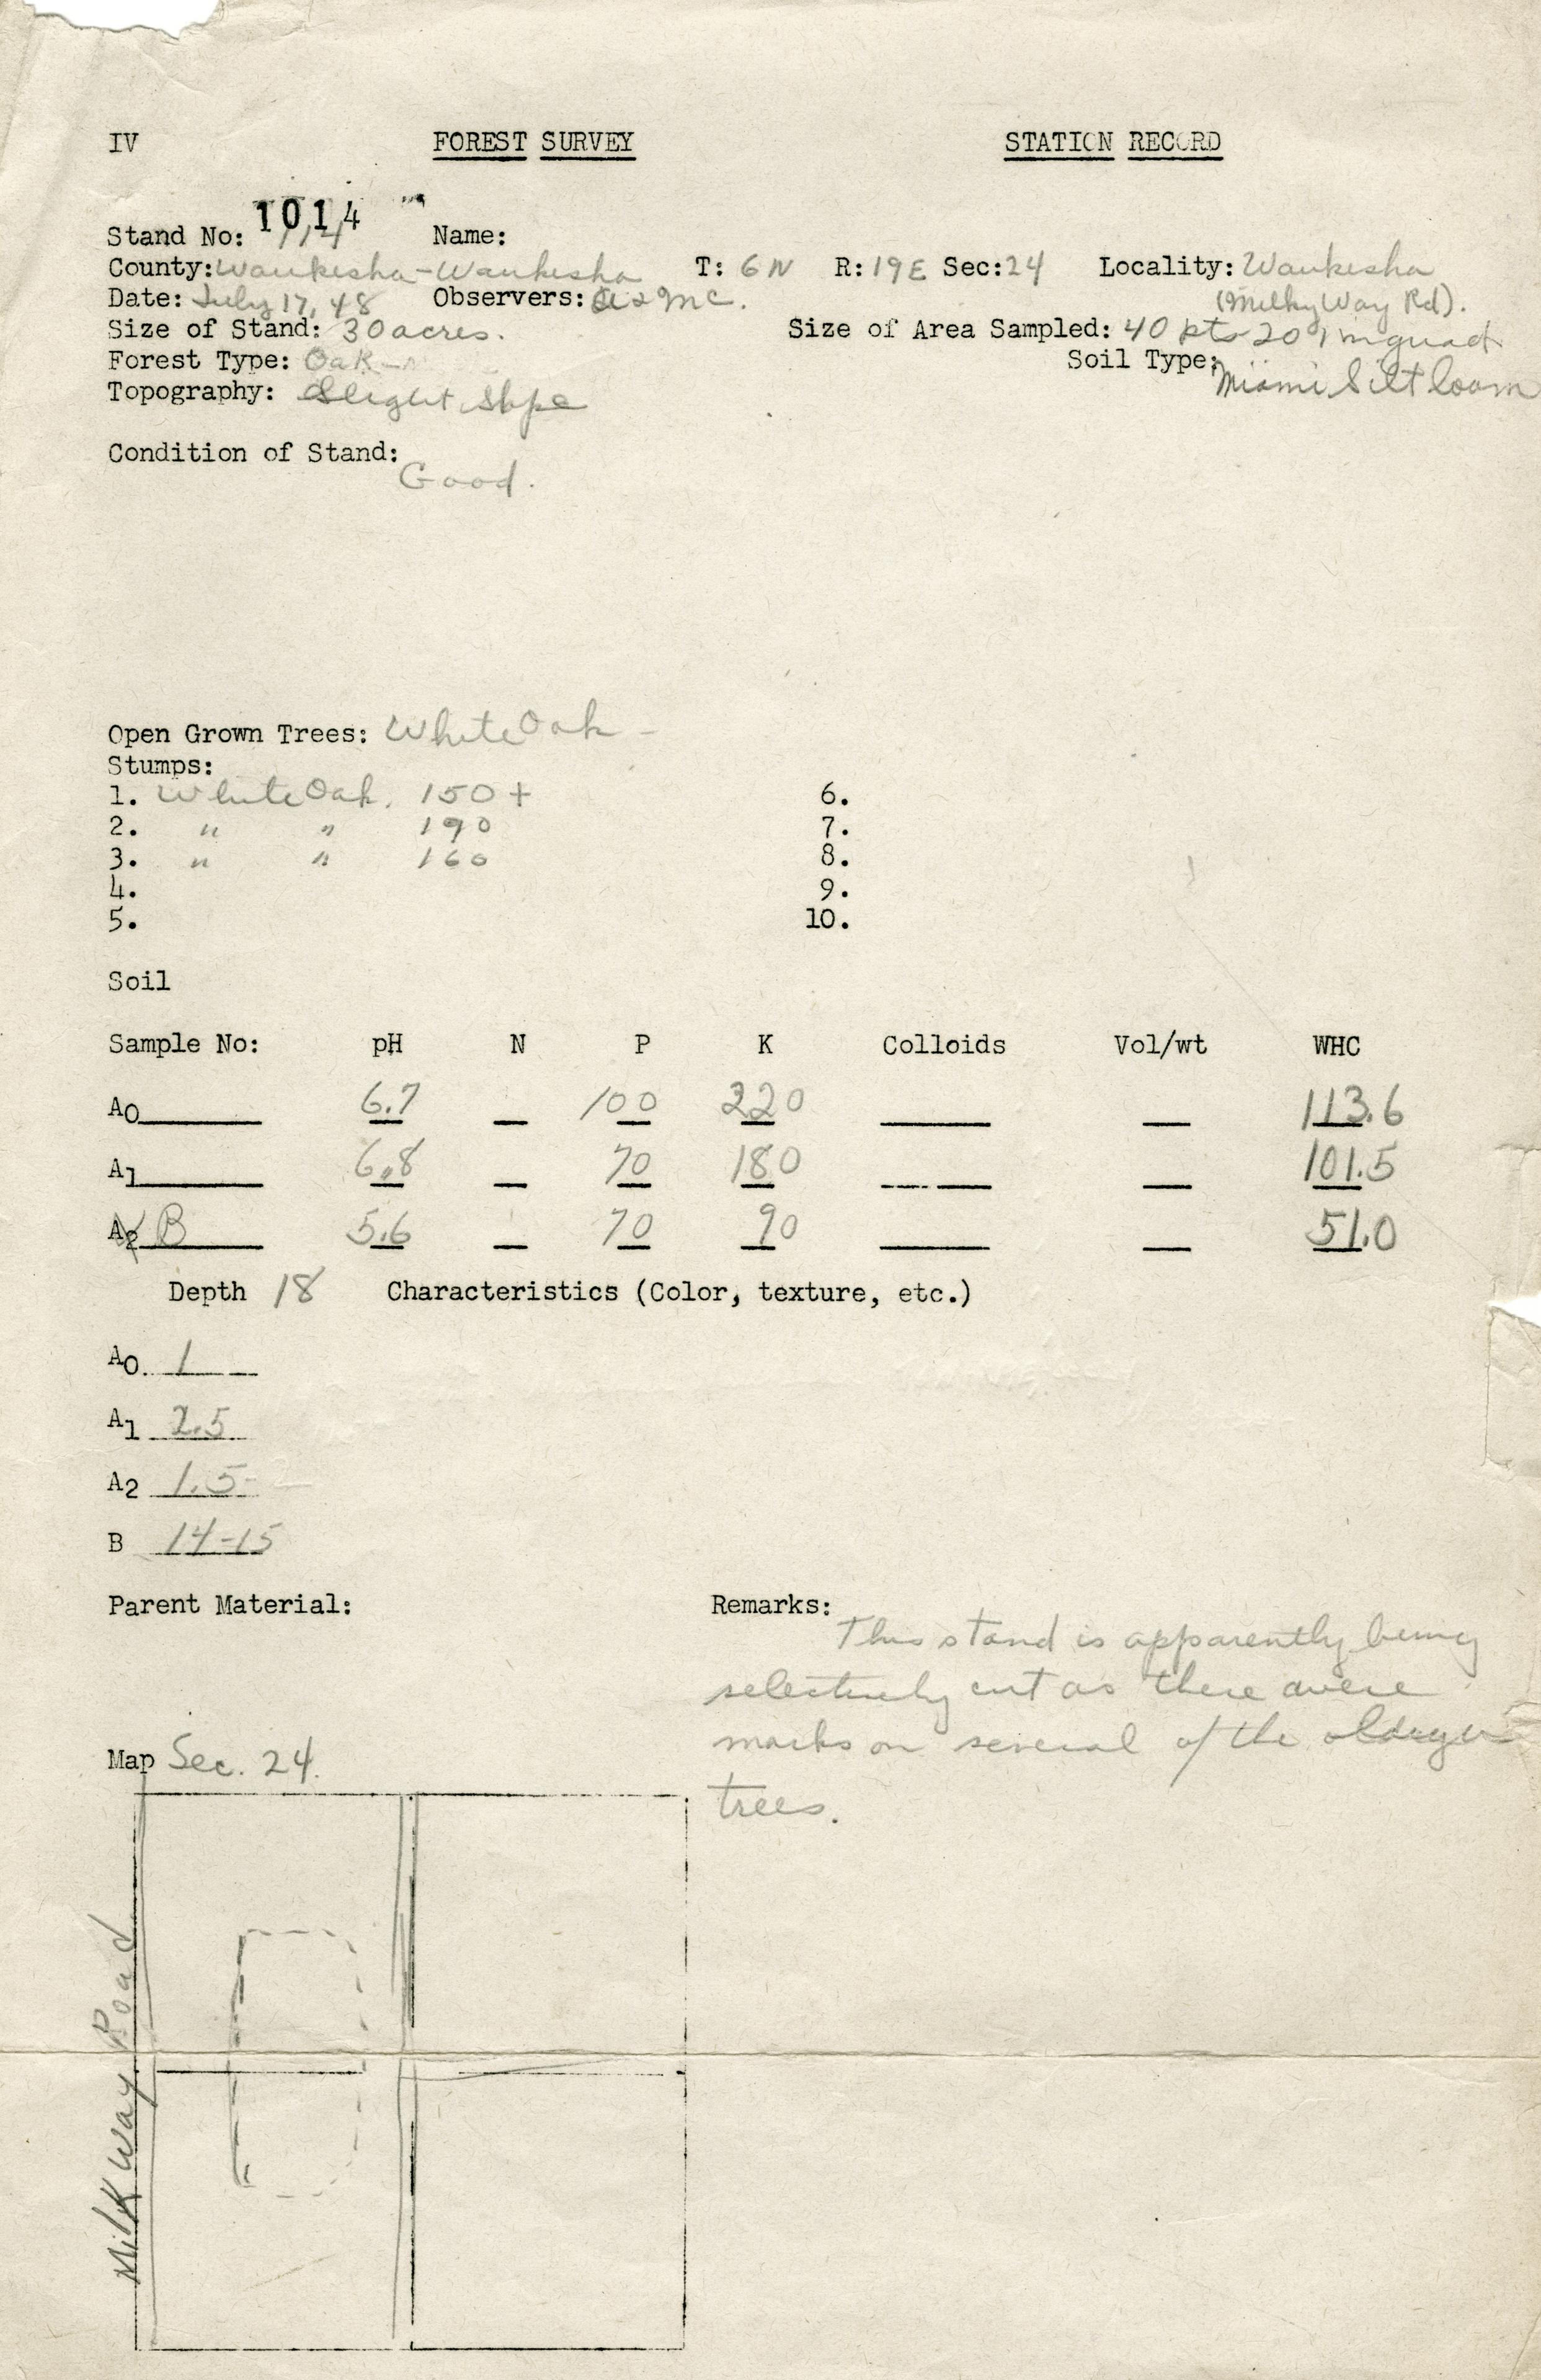 IV FOREST SURVEY STATION RECORD
Stand No: 1014 Name:
County: Waukesha-Waukesha T: 6N R: 19E Sec: 24 Locality: Waukesha
(Milky Way Rd).
Date: July 17, 48 Observers:
Size of Stand: 30 acres. Size of Area Sampled: 40 pts 20 1 m quad
Forest Type: Oak Soil Type: Miami Silt loam
Topography: Slight Slope
Condition of Stand:
Good.
Open Grown Trees: White Oak -
Stumps:
1. White Oak. 150+ 6.
2. " " 190 7.
3. " " 160 8.
4. 9.
5. 10.
Soil
Sample No: pH N P K Colloids Vol/wt WHC
A0 6.7 100 220 113.6
A1 6.8 70 180 101.5
A2 B 5.6 70 90 51.0
Depth 18 Characteristics (Color, texture, etc.)
A0. 1
A1 2.5
A2 1.5
B 14-15
Parent Material: Remarks:
This stand is apparently being
selectively cut as there were
marks on several of the
trees.
Map Sec. 24.
Milk Way Road